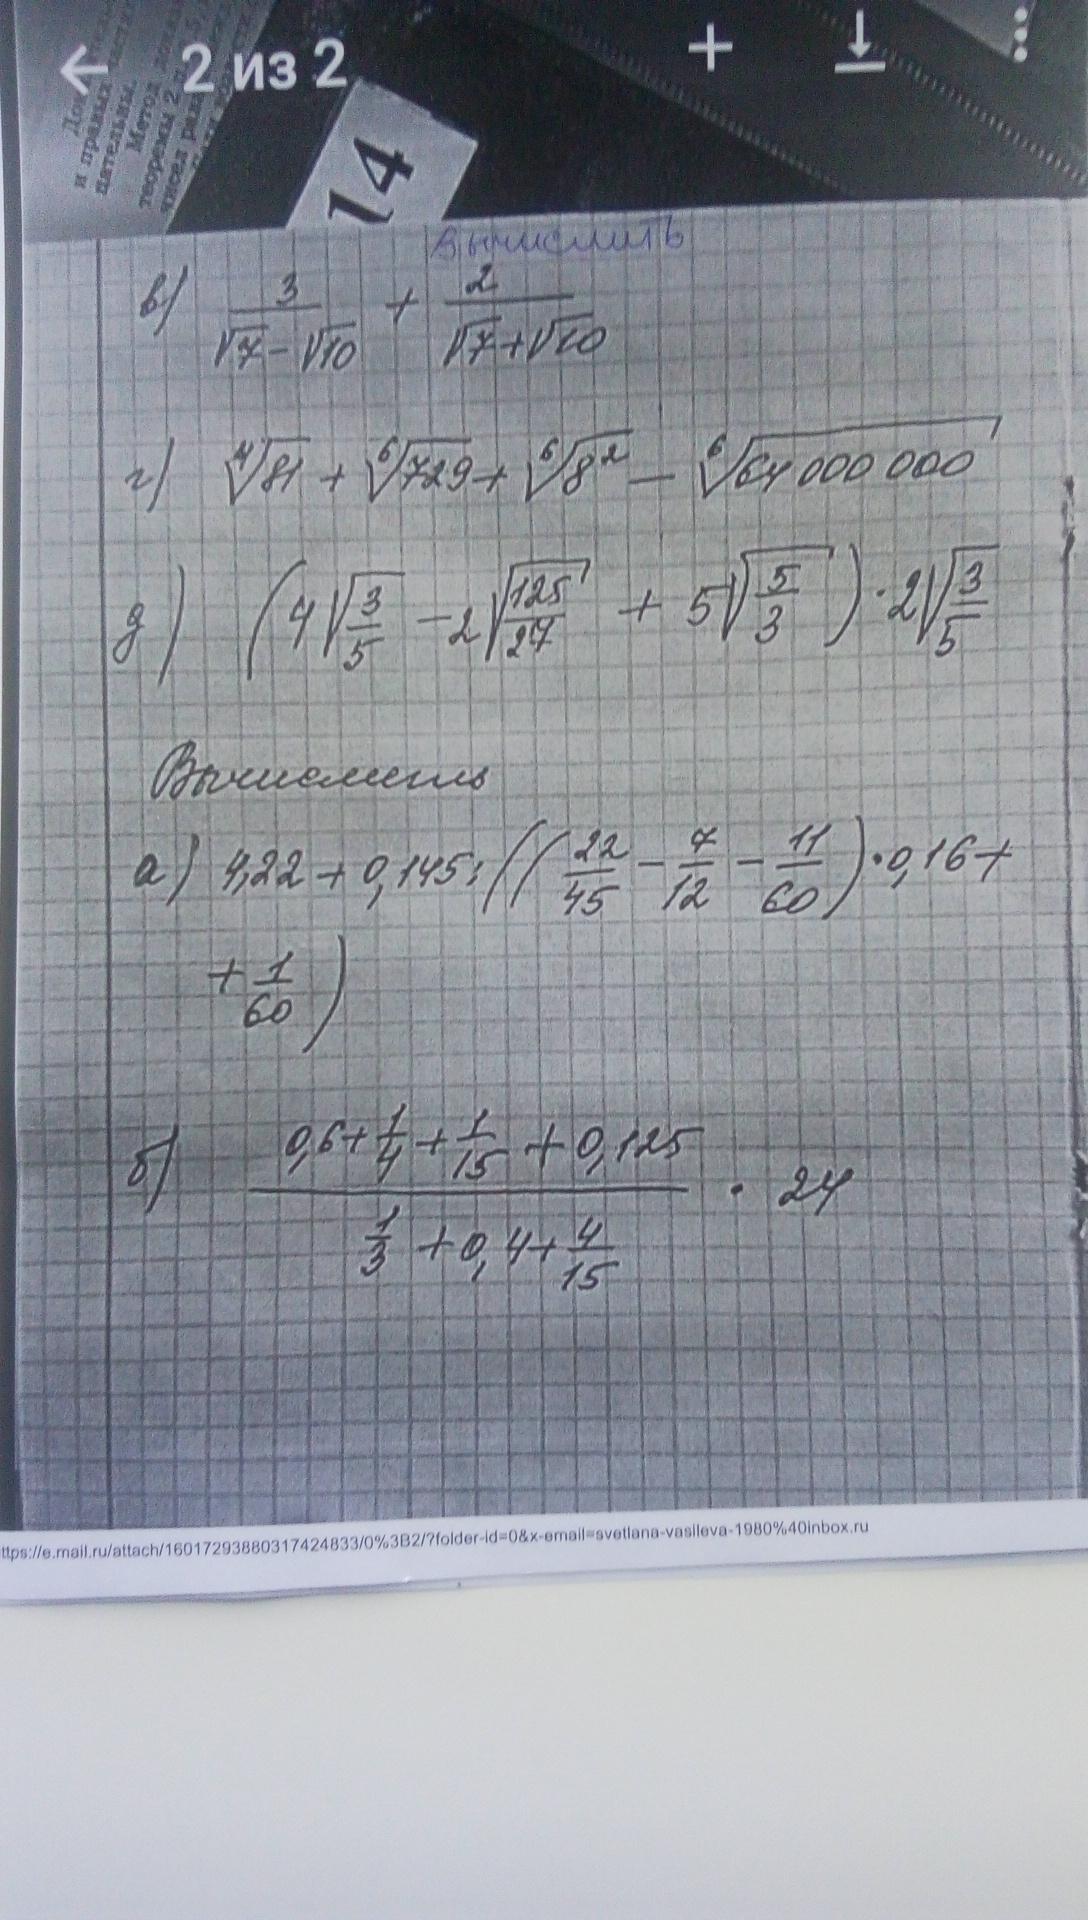 2 из 2
и правых
пательны.
Метод
теоремы 2
чисел
14
Вычислить
в) 3/(√7-√10) + 2/(√7+√10)
г) ⁴√81 + ⁶√729 + ⁶√8² - ⁶√64 000 000
д) (4√(3/5) - 2√(125/27) + 5√(5/3)) · 2√(3/5)
Вычислить
а) 4,22 + 0,145 : ((22/45 - 7/12 - 11/60) · 0,16 +
+ 1/60)
б) (0,6 + 1/4 + 1/15 + 0,125)/(1/3 + 0,4 + 4/15) · 24
ttps://e.mail.ru/attach/16017293880317424833/0%3B2/?folder-id=0&x-email=svetlana-vasileva-1980%40inbox.ru